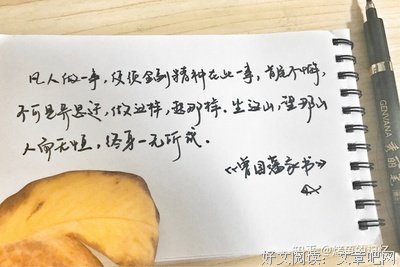 凡人做一事，便须全副精神在此一事，首尾不懈，
不可见异思迁，做这样，想那样．坐这山，望那山
人而无恒，终身一无所成．
《曾国藩家书》
GENVANA
知乎
好文阅读：文章吧网